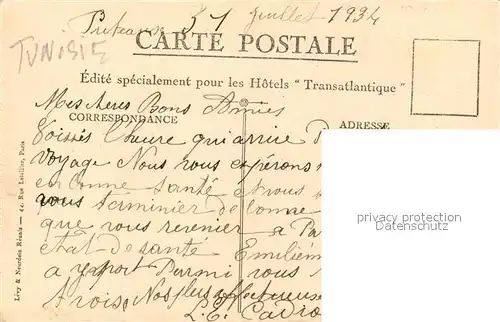 Puteaux 31 juillet 1934
TUNISIE
CARTE POSTALE
Édité spécialement pour les Hôtels " Transatlantique "
Mes chers Bons Amies
CORRESPONDANCE
ADRESSE
l'heure qui arrive
voyage Nous vous espérons
en bonne santé et nous
vous terminier de bonne
que vous revenier a Pa
etat de santé Emilienne
a Parmi vous
trois Nos plus affectueuse
L. E. Cadro
Lévy & Neurdein Réunis — 44, Rue Letellier, Paris
privacy protection
Datenschutz